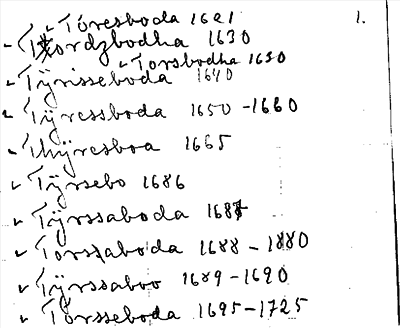 Toresboda 1621 1.
Thordzbodha 1630
Torsbodha 1630
Tÿrisseboda 1640
Tÿressboda 1650-1660
Thÿresboa 1665
Tÿrsebo 1686
Tÿrssaboda 1687
Torssaboda 1688-1880
Tÿrssaboo 1689-1690
Törsseboda 1695-1725